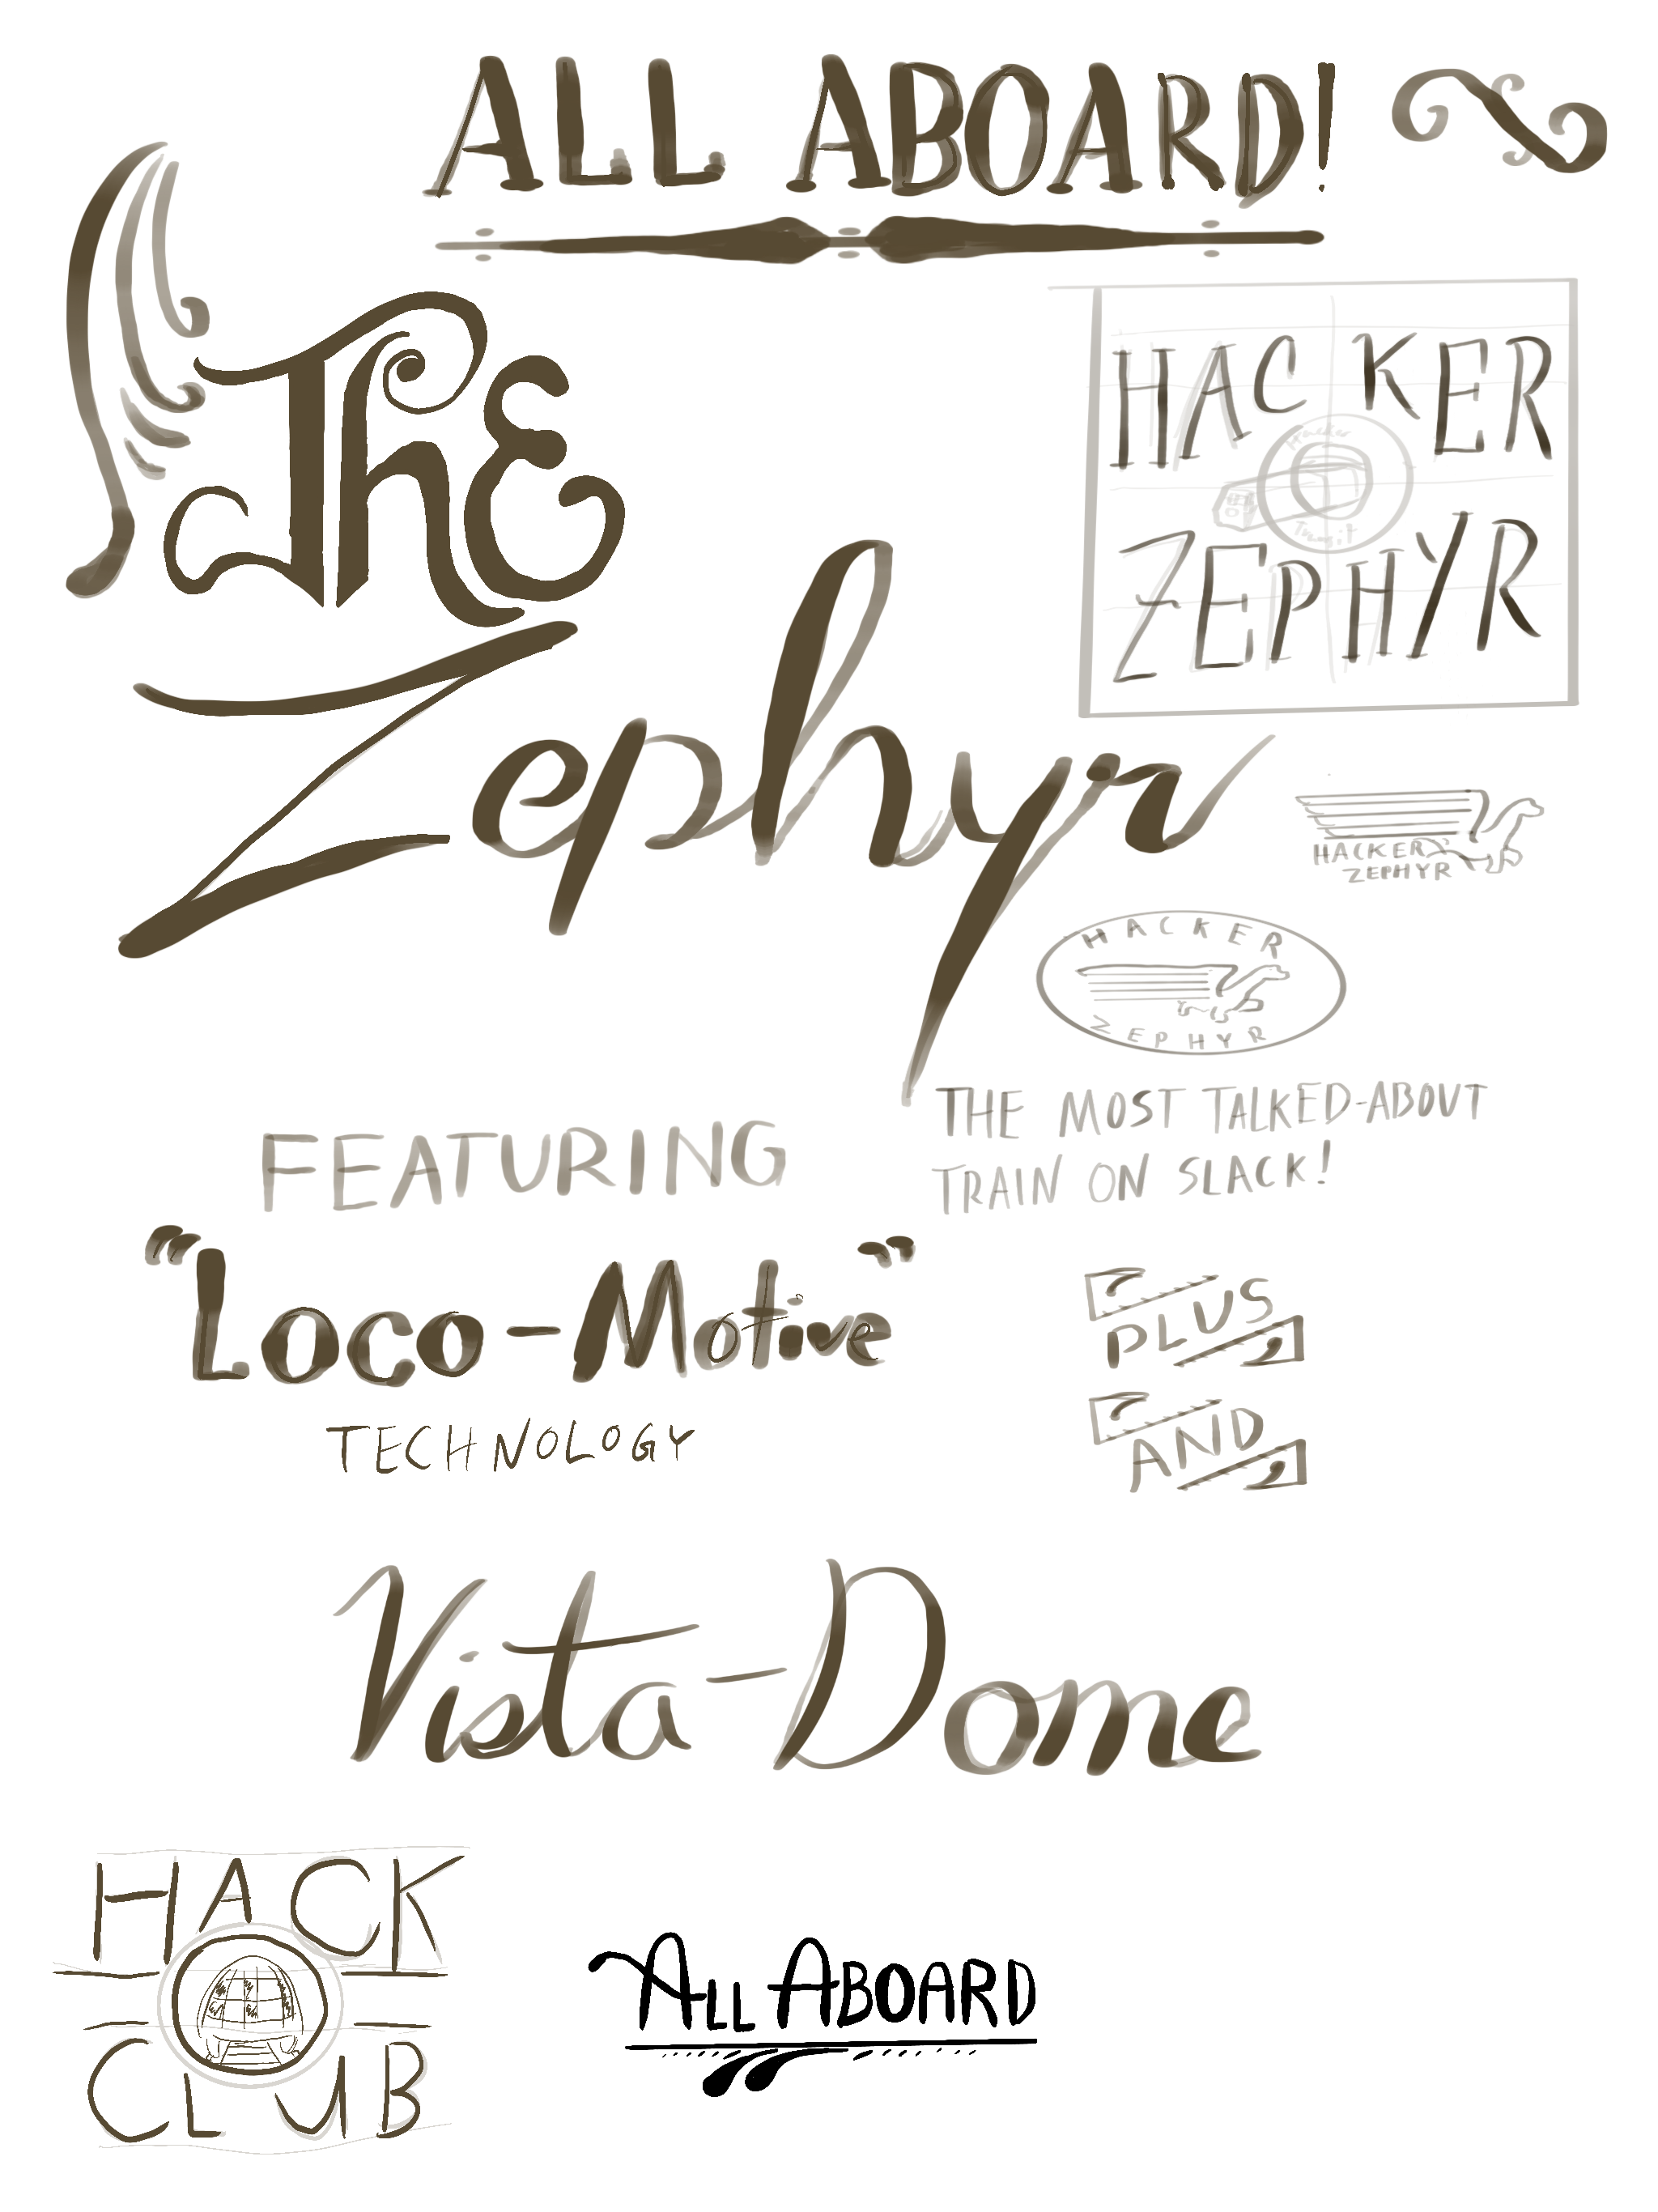 ALL ABOARD!
The
Zephyr
HACKER
Hacker
Transit
ZEPHYR
HACKER
ZEPHYR
HACKER
ZEPHYR
THE MOST TALKED-ABOUT
TRAIN ON SLACK!
FEATURING
"Loco-Motive"
TECHNOLOGY
PLUS
AND
Vista-Dome
HACK
CLUB
ALL ABOARD